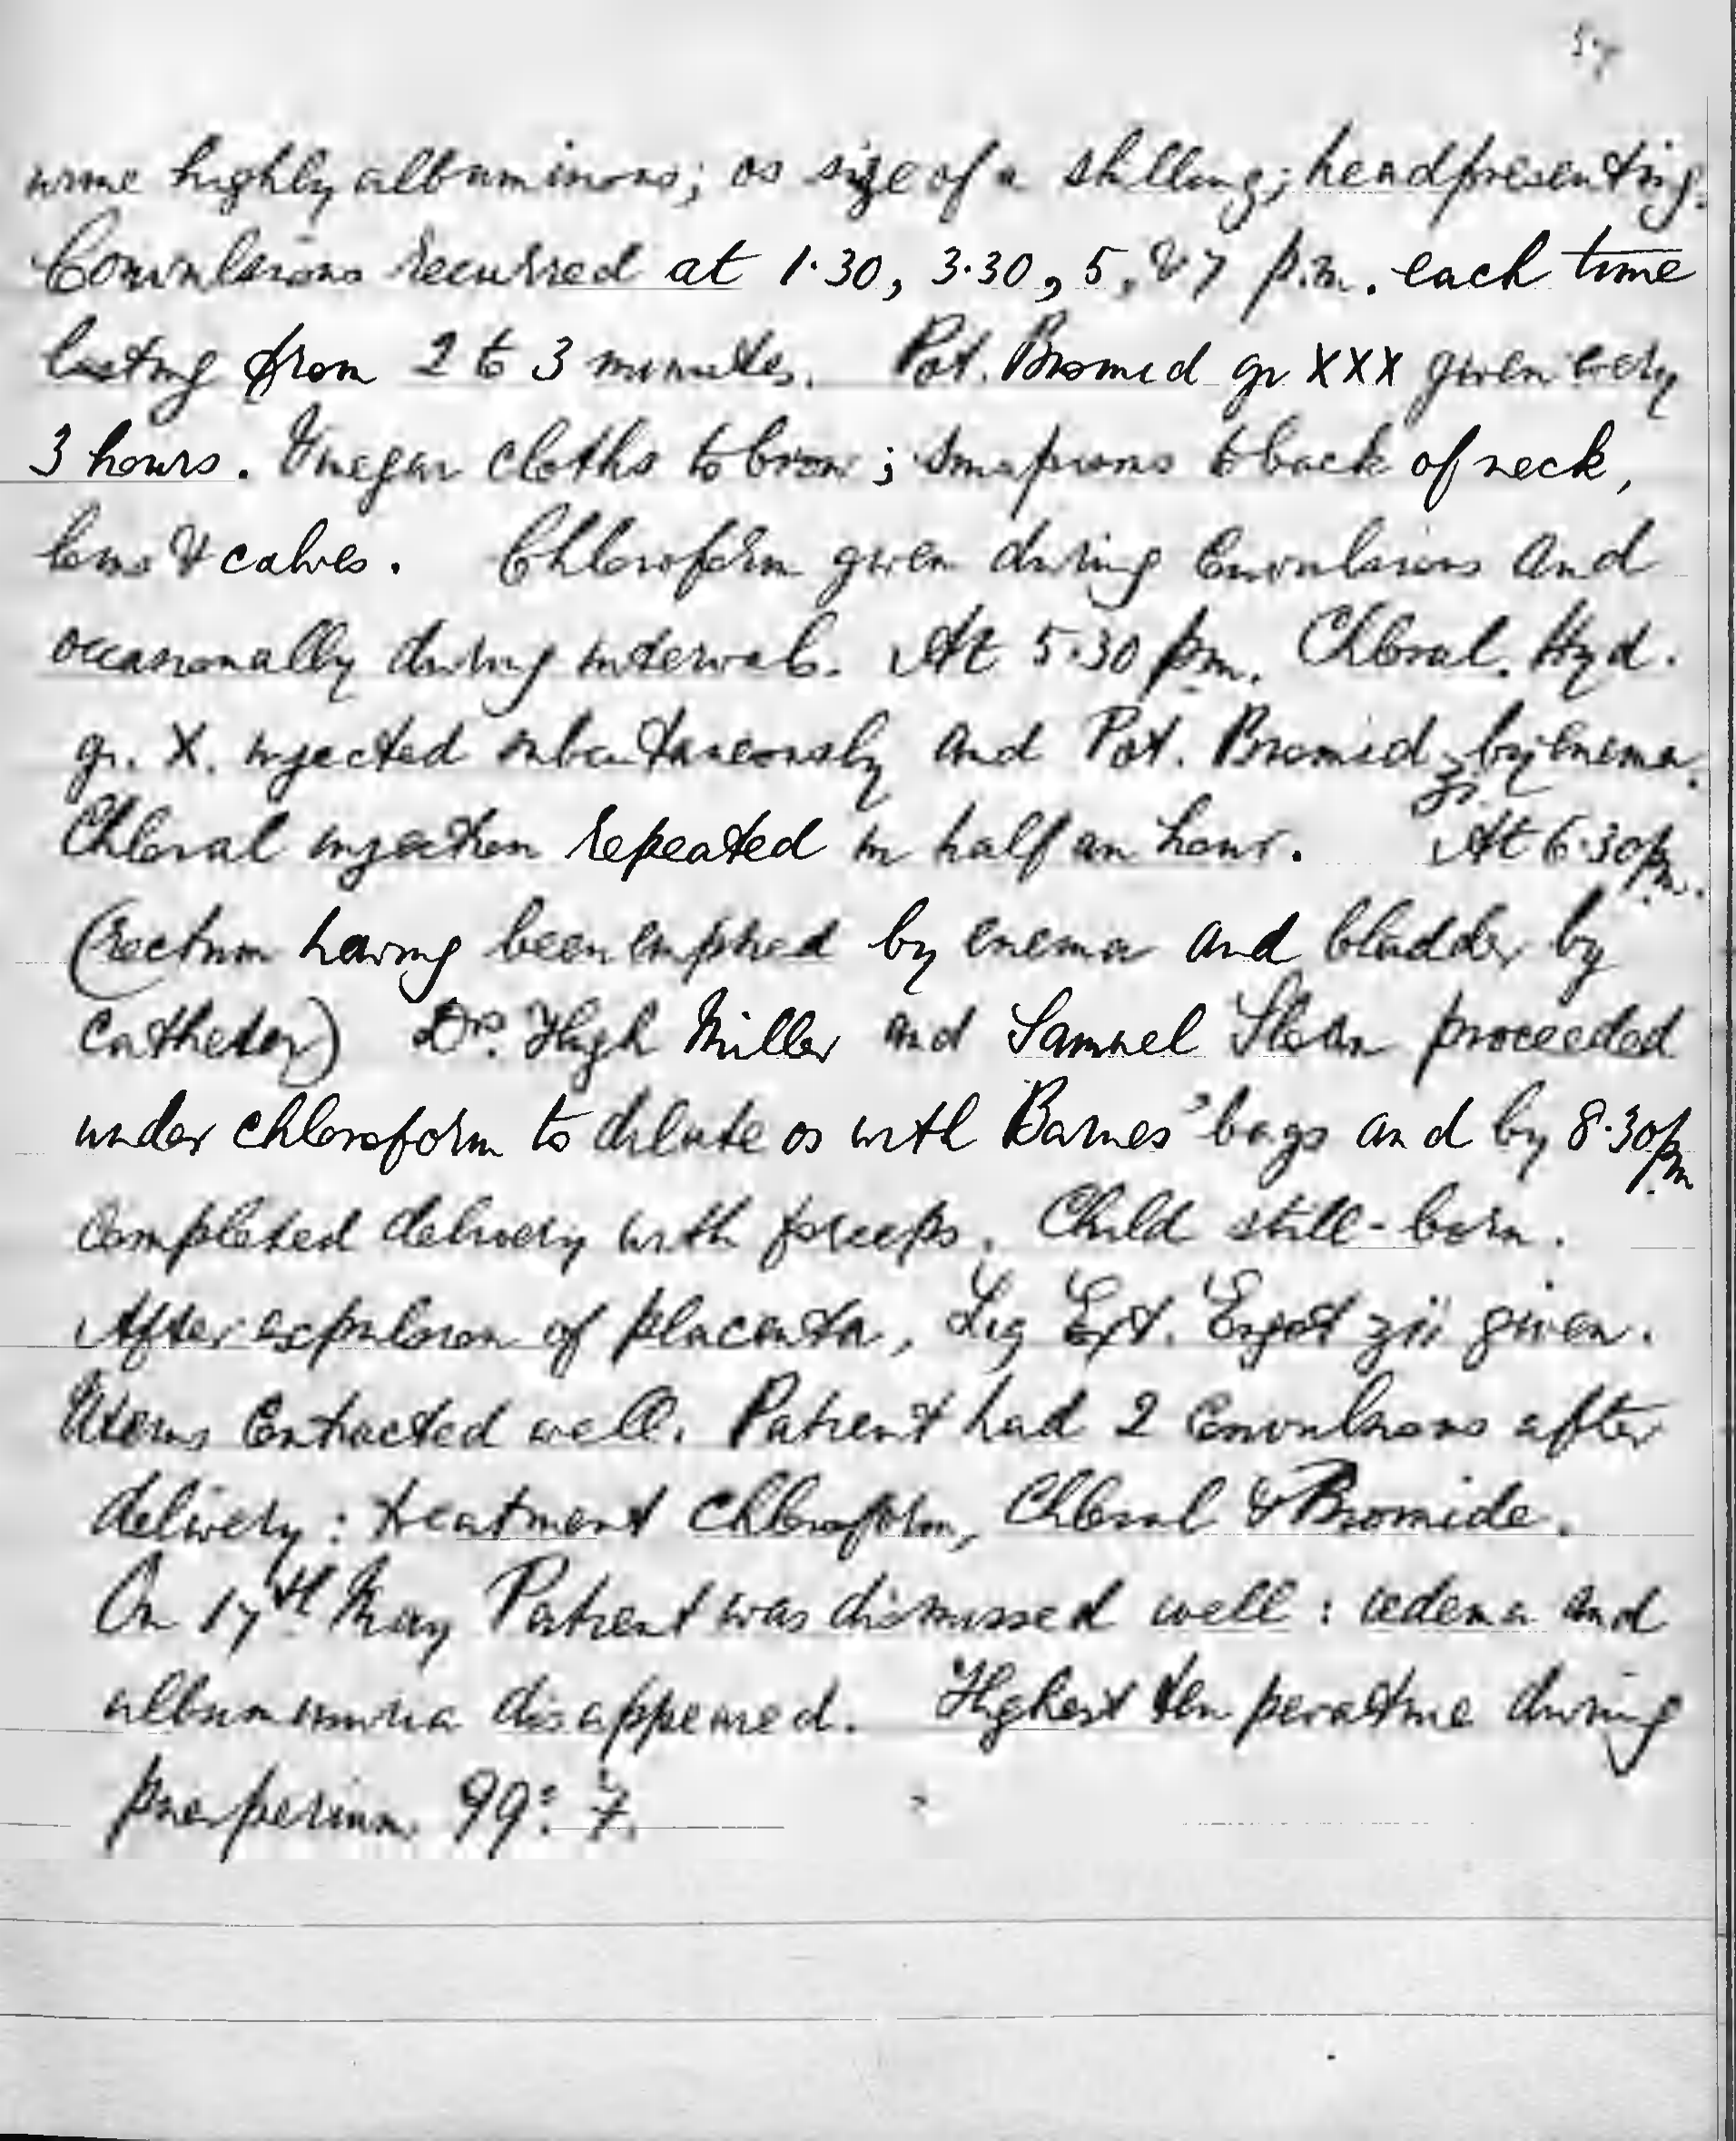 57
urine highly albuminous; os size of a shilling; head presenting.
Convulsions recurred at 1·30, 3·30, 5, & 7 p.m. each time
lasting from 2 to 3 minutes. Pot. Bromid gr XXX given every
3 hours. Vinegar cloths to brow; sinapisms to back of neck,
loins & calves. Chloroform given during Convulsions and
occasionally during intervals. At 5·30 pm. Chloral. Hyd.
gr. X. injected subcutaneously and Pot. Bromid ʒi. by enema.
Chloral injection repeated in half an hour. At 6·30 pm.
(rectum having been emptied by enema and bladder by
catheter) Drs. Hugh Miller and Samuel Sloan proceeded
under chloroform to dilate os with Barnes' bags and by 8·30 pm
completed delivery with forceps. Child still-born.
After expulsion of placenta, Liq Ext. Ergot ʒii given.
Uterus Contracted well. Patient had 2 Convulsions after
delivery: treatment Chloroform, Chloral & Bromide.
On 17th May Patient was dismissed well: œdema and
albuminuria disappeared. Highest temperature during
puerperium 99°.7.